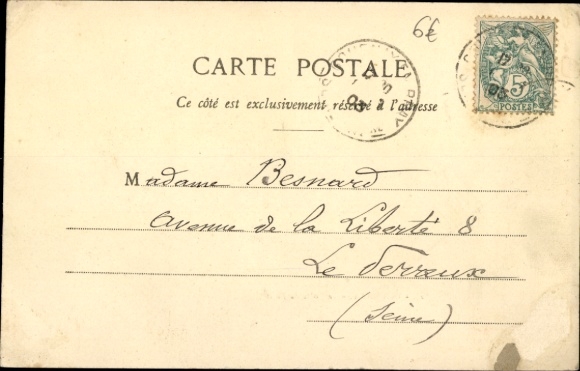 6€
CARTE POSTALE
Ce côté est exclusivement réservé à l'adresse
Madame Besnard
Avenue de la Liberté 8
Le Perreux
(Seine)
5
POSTES
03